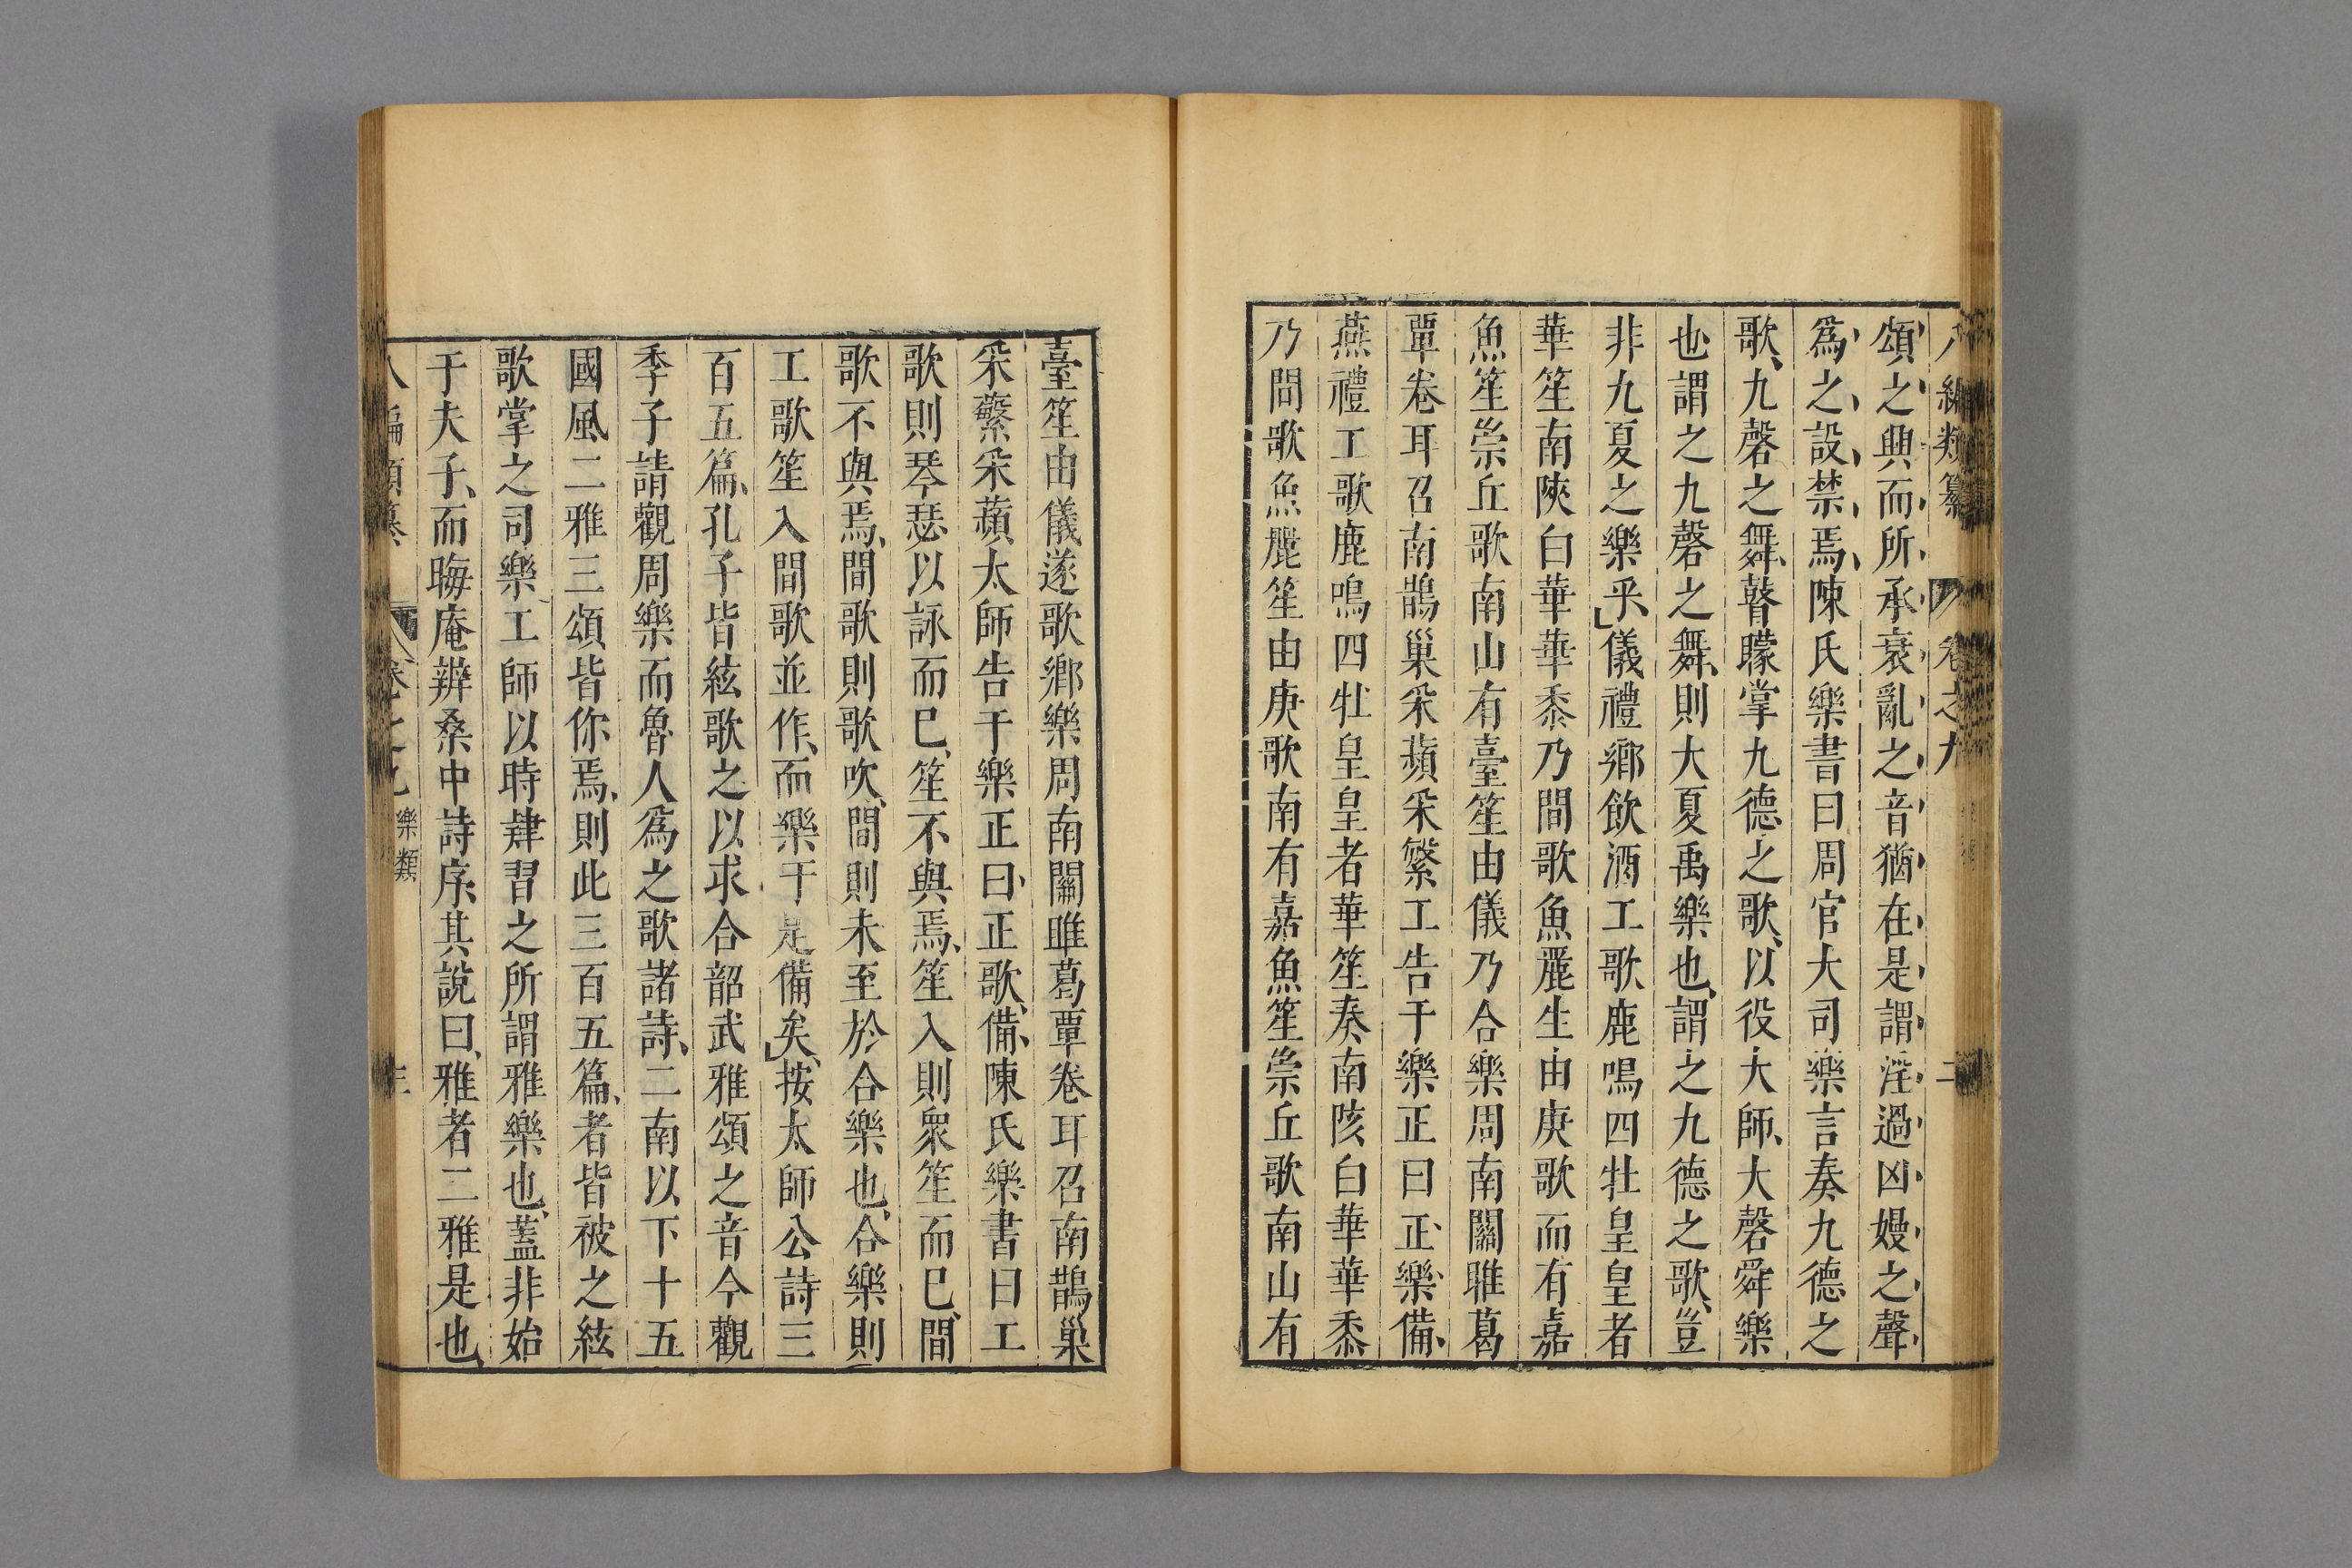 八編類纂 卷之九 二
頌之興而所承衰亂之音猶在是謂淫過凶嫚之聲
爲之設禁焉陳氏樂書曰周官大司樂言奏九德之
歌九磬之舞瞽矇掌九德之歌以役大師大磬舜樂
也謂之九磬之舞則大夏禹樂也謂之九德之歌豈
非九夏之樂乎儀禮鄉飲酒工歌鹿鳴四牡皇皇者
華笙南陝白華華黍乃間歌魚麗生由庚歌而有嘉
魚笙崇丘歌南山有臺笙由儀乃合樂周南關雎葛
覃卷耳召南鵲巢采蘋采繁工告于樂正曰正樂備
燕禮工歌鹿鳴四牡皇皇者華笙奏南陔白華華黍
乃間歌魚麗笙由庚歌南有嘉魚笙崇丘歌南山有
臺笙由儀遂歌鄉樂周南關雎葛覃卷耳召南鵲巢
采蘩采蘋太師告于樂正曰正歌備陳氏樂書曰工
歌則琴瑟以詠而已笙不與焉笙入則衆笙而已間
歌不與焉間歌則歌吹間則未至於合樂也合樂則
工歌笙入間歌並作而樂于是備矣按太師公詩三
百五篇孔子皆絃歌之以求合韶武雅頌之音今觀
季子請觀周樂而魯人爲之歌諸詩二南以下十五
國風二雅三頌皆你焉則此三百五篇者皆被之絃
歌掌之司樂工師以時肄習之所謂雅樂也蓋非始
于夫子而晦庵辨桑中詩序其說曰雅者二雅是也
八編類纂 卷之九 樂類 三